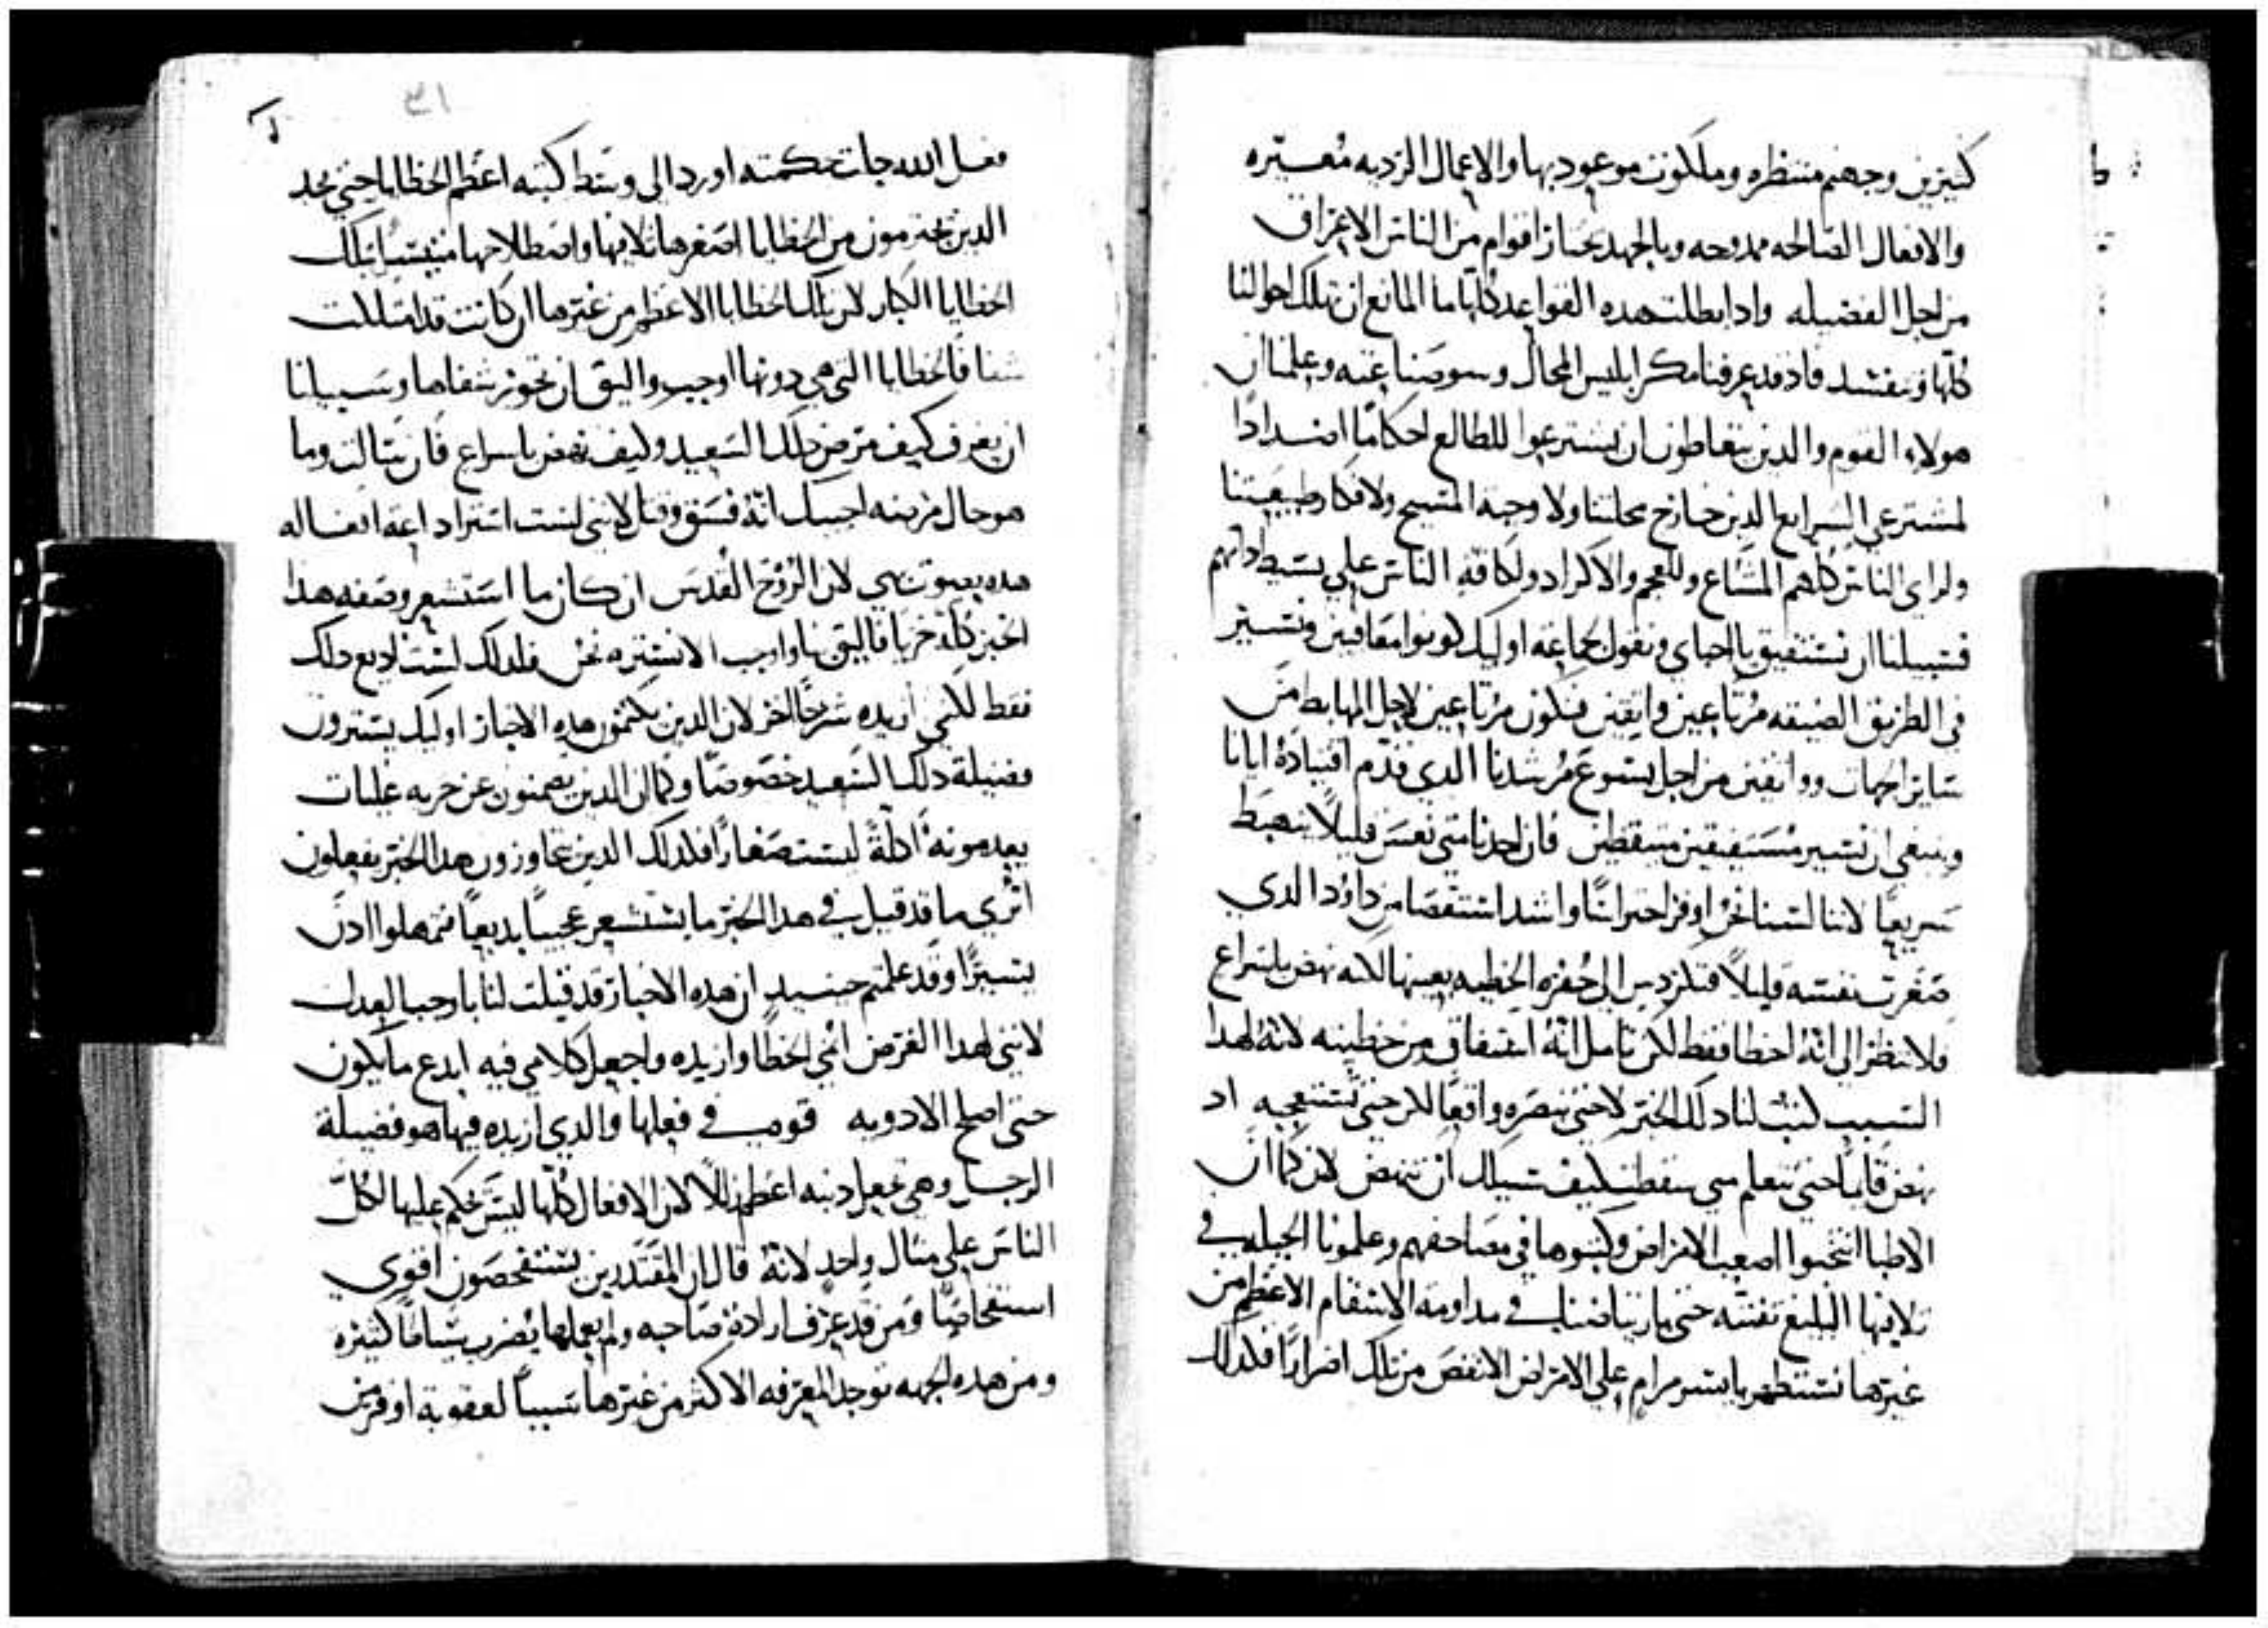 كثيرين وجهنم منتظره وملكوت موعود بها والاعمال الرديه معيره
والافعال الصالحه ممدوحه وبالجهد يختار اقوام من الناس الاعراق
من اجل الفضيله وادا بطلت هده القواعد كلها ما المانع ان تهلك احوالنا
كلها وتفسد فاد قد عرفنا مكر ابليس المحال وسو صناعته وعلمنا ان
هولاء القوم والدين يتعاطون ان يشترعوا للطالع احكاما اضدادا
لمشترعي الشرايع الدين خارج محلتنا ولا وحيه المسيح ولافكار طبيعتنا
ولراي الناس كلهم المشاع وللعجم والاكراد ولكافه الناس علي بسيط داتهم
فسبيلنا ان نستفيق يا احباي ونقول لجماعه اوليك كونوا معافين ونسير
في الطريق الضيقه مرتاعين واثقين فنكون مرتاعين لاجل المهابط من
ساير الجهات وواثقين من اجل يسوع مرشدنا الدي قدم اقتياده ايانا
وينبغي ان نسير مستفيقين متيقظين فان احدنا متي نعس قليلا يهبط
سريعا لاننا لسنا نحن اوفر احتراسا واشد استقصا من داوود الدي
صغرت نفسه قليلا فتكردس الي حفره الخطيه بعينها لاكنه نهض باسراع
فلا تنظر الي انه اخطا فقط لكن تامل انه استفاق من خطيته لانه لهدا
السبب كتب لنا دلك الخبر لا حتي تبصره واقعا لكن حتي تستعجبه اد
نهض قايما حتي تتعلم متي سقطت كيف سبيلك ان تنهض لان كما ان
الاطبا انتخبوا اصعب الامراض وكتبوها في مصاحفهم وعلمونا الحيله في
تلافيها البليغ نفسه حتي بارتياضنا في مداومه الاسقام الاعظم من
غيرها نستظهر بايسر مرام علي الامراض الانقص من تلك اضرارا فلدلك
٣١
فعل الله جلت حكمته اورد الي وسط كتبه اعظم الخطايا حتي يجد
الدين يجترمون من الخطايا اصغرها تلافيها واصطلاحها متيسرا بتلك
الخطايا الكبار لان تلك الخطايا الاعظم من غيرها ان كانت قد امتلكت
شفا فالخطايا التي هي دونها اوجب واليق ان تحوز شفاها وسبيلنا
ان نعرف كيف مرض دلك السعيد وكيف نهض باسراع فان سالت وما
هو حال مرضه اجبتك انه فسق وقتل لانني لست استر اداعه افعاله
هده بصوت بهي لان الروح القدس ان كان ما استشعر وصفه هدا
الخبر كله خزيا فاليق بنا واوجب الا نستره نحن فلدلك لست اديع دلك
فقط لكني ازيده شرحا اخر لان الدين يكتمون هده الاخبار اوليك يسترون
فضيلة دلك السعيد خصوصا وكما ان الدين يصمتون عن حربه غليات
يعدمونه ادلة ليست صغارا فلدلك الدين يجاوزون هدا الخبر يفعلون
اتري ما قد قيل في هدا الخبر ما يستشعر عجيبا بديعا فتمهلوا ادن
يسيرا وقد علمتم حينيد ان هده الاخبار قد قيلت لنا باوجب العدل
لانني لهدا الغرض انمي الخطا وازيده واجعل كلامي فيه ابدع ما يكون
حتي اصلح الادويه قوي في فعلها والدي ازيده فيها هو فضيلة
الرجل وهي تجعل دنبه اعظم زللا لان الافعال كلها ليس يحكم عليها لكل
الناس علي مثال واحد لانه قال ان المقتدرين يستفحصون اقوي
استفحاصا ومن قد عرف ارادة صاحبه ولم يعملها يضرب سياطا كثيره
ومن هده الجهه توجد المعرفه الاكثر من غيرها سببا لعقوبة اوفر من